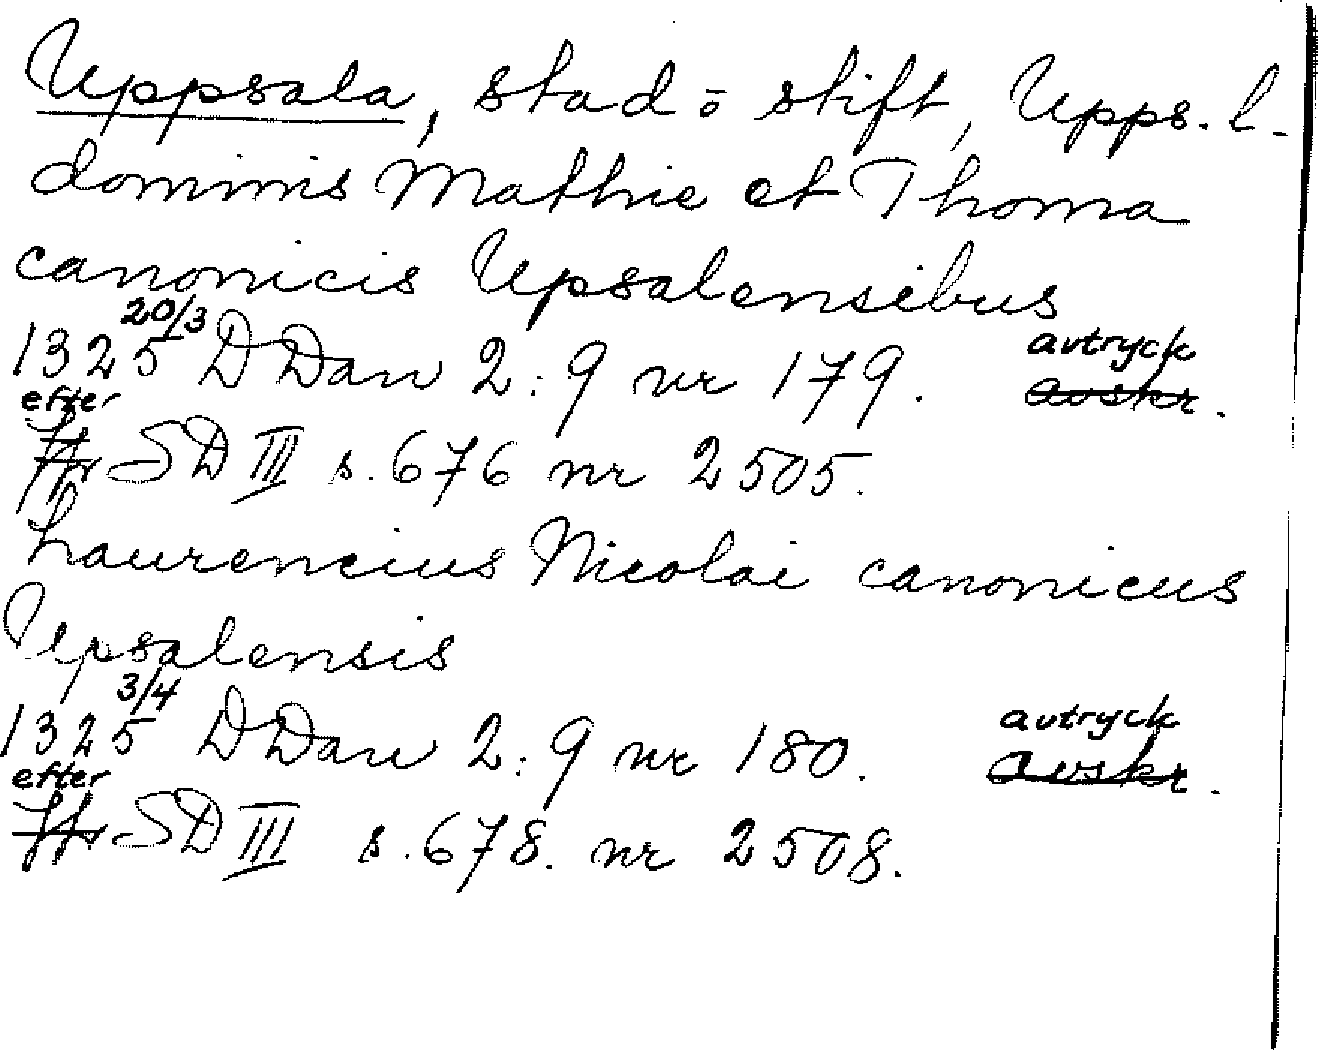 Uppsala, stad o stift, Upps. l.
dominis Mathie et Thoma
canonicis Upsalensibus
1325 20/3 DDan 2:9 nr 179. avtryck avskr.
efter
SD III s. 676 nr 2505.
Laurencius Nicolai canonicus
Upsalensis
1325 3/4 DDan 2:9 nr 180. avtryck avskr.
efter
SD III s. 678. nr 2508.